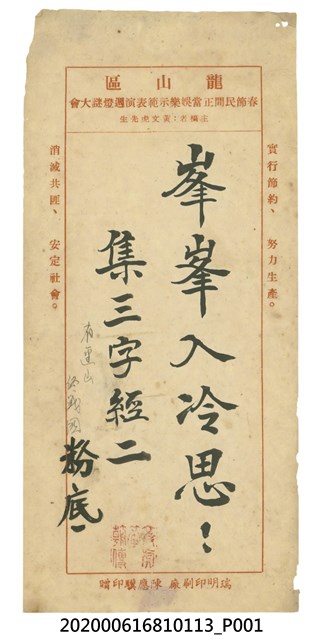 龍山區
春節民間正當娛樂示範表演週燈謎大會
主稿者：黃文虎先生
實行節約、努力生產。
峯峯入冷思！
集三字經二
粉底一
有連山
消滅共匪、安定社會。
瑞明印刷廠 陳應騏印贈
202000616810113_P001